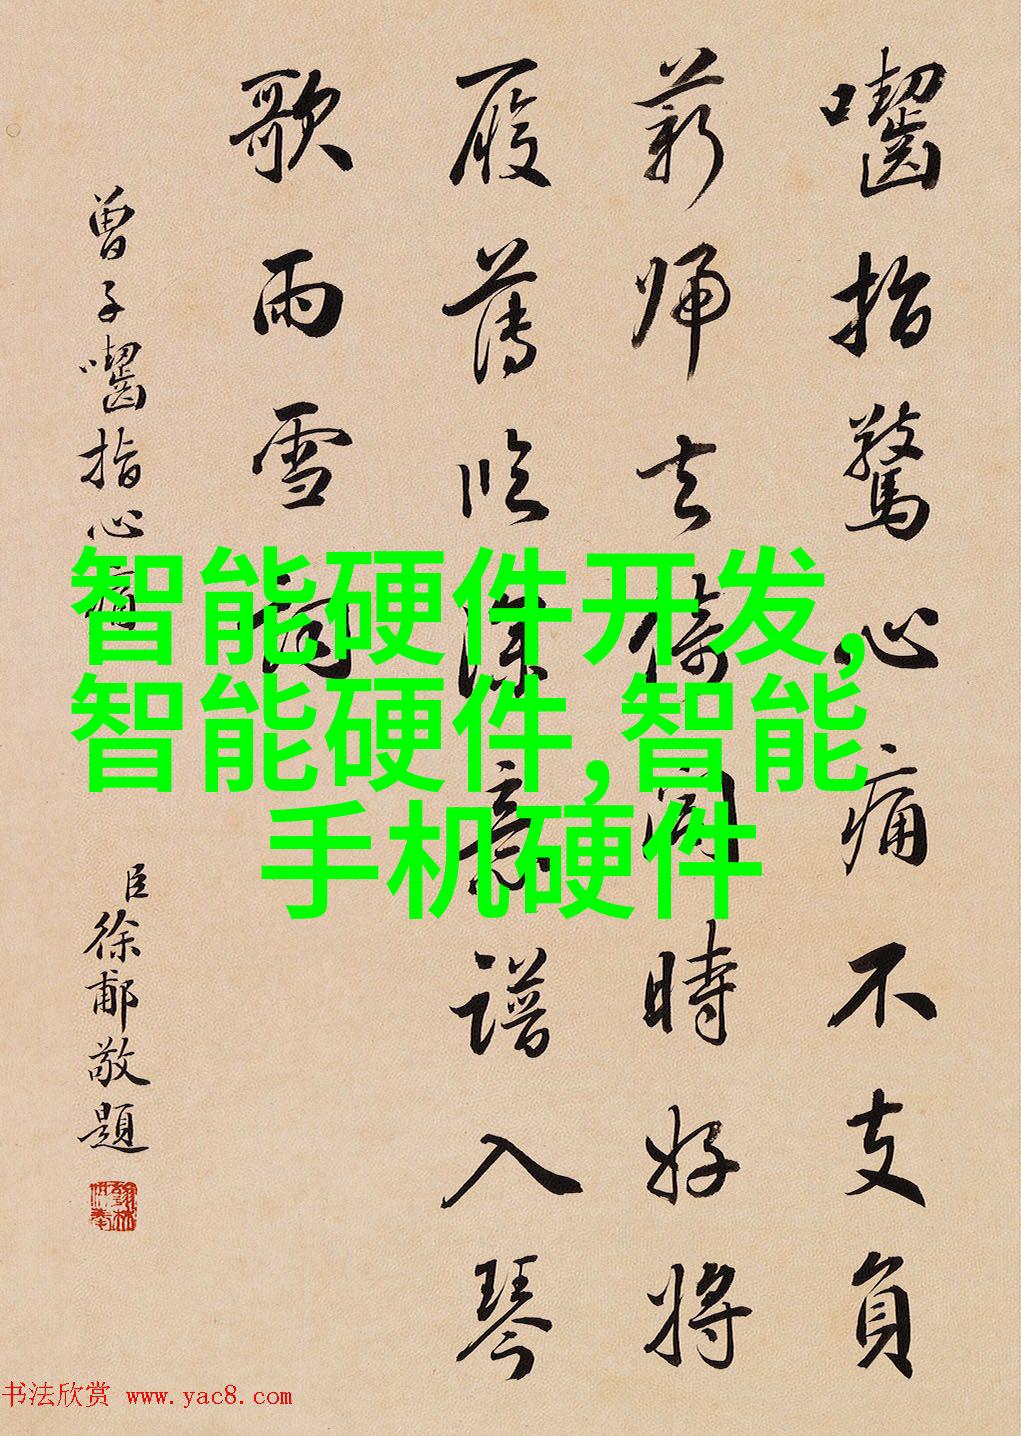 囓指驚心痛不支負
薪歸去倚閭時好將
履薄臨深意譜入琴
歌雨雪詞
曾子囓指心痛
臣徐郙敬題
智能硬件开发,
智能硬件,智能
手机硬件
书法欣赏 www.yac8.com